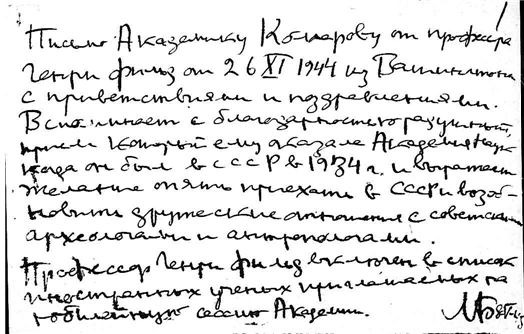 Письмо Академику Комарову от профессора
Генри Фильд от 26 XI 1944 из Вашингтона
с приветствиями и поздравлениями.
Вспоминает с благодарностью радушный
прием который ему оказала Академия Наук
когда он был в СССР в 1934 г. и выражает
желание опять приехать в СССР и возоб-
новить дружеские отношения с советскими
археологами и антропологами.
Профессор Генри Фильд включен в список
иностранных ученых приглашаемых на
юбилейную сессию Академии.